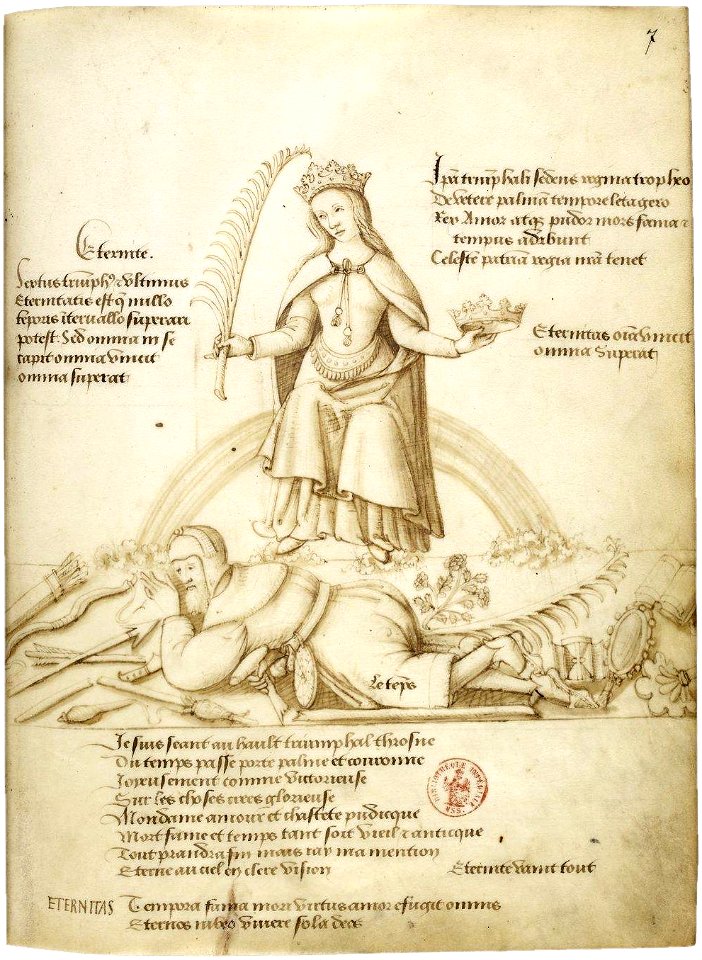 7
triūphali sedens regina tropheo
De vetere palmā tempore leta gero
Rex Amor atq; pudor mors fama &
tempus
Celestē patriā regia nrā tenet
Eternite.
triūph9 & vltimus
Eternitatis est q nullo
tēporis īteruallo superari
potest. Sed omnia in se
capit omnia vincit
omnia superat
Eternitas oīa vincit
omnia Superat
Le tēps
Je suis seant au hault triumphal throsne
Du temps passe porte palme et couronne
Joyeusement comme victorieuse
Sur les choses crees glorieuse
Mondame amour et chastete pudicque
Mort fame et temps tant soit vieil & anticque
Tout prandra fin mais ma mention
Eterne au ciel en clere vision
Eternite vainct tout
ETERNITAS
Tempora fama mors virtus amor effugit omnis
Eternos iubeo viuere sola deos
BIBLIOTHEQUE IMPERIALE
MSS.